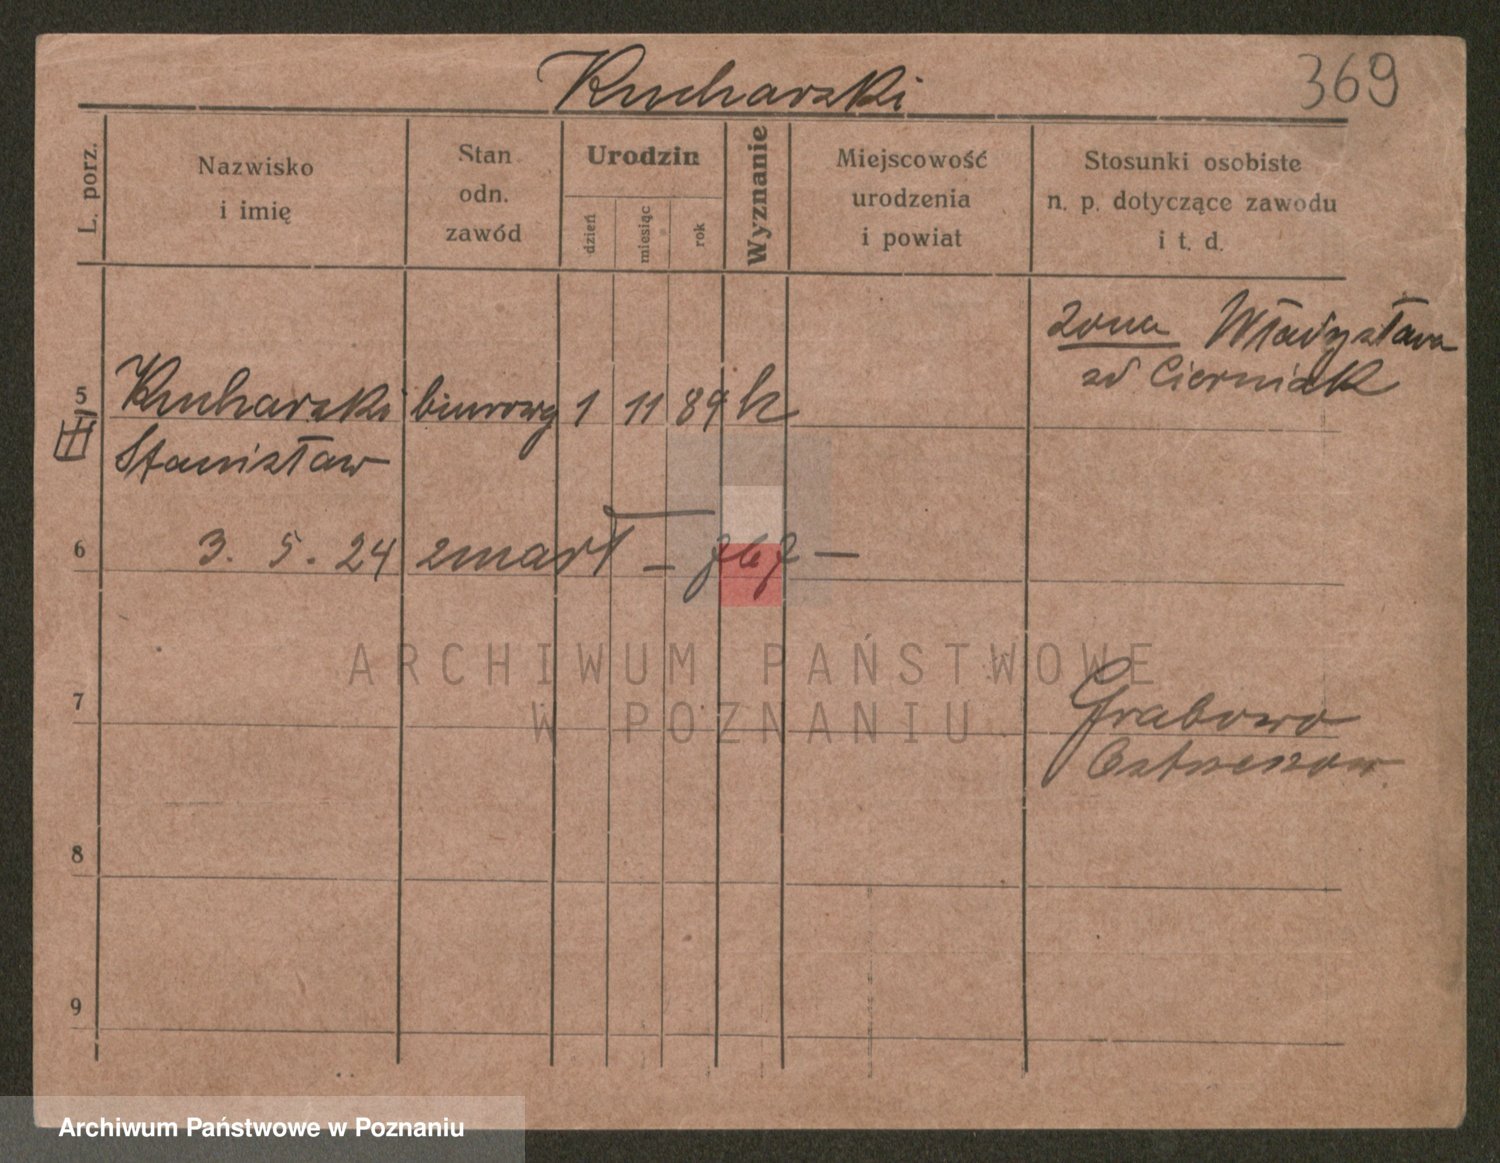 369
Kucharski
L. porz.
Nazwisko
i imię
Stan
odn.
zawód
Urodzin
dzień
miesiąc
rok
Wyznanie
Miejscowość
urodzenia
i powiat
Stosunki osobiste
n. p. dotyczące zawodu
i t. d.
żona Władysława
zd Cierniak
5 Kucharski biurowy 1 11 89 k
Stanisław
6 3. 5. 24 zmarł — 767 —
7
Grabowo
Ostrzeszow.
8
9
ARCHIWUM PAŃSTWOWE
W POZNANIU
Archiwum Państwowe w Poznaniu